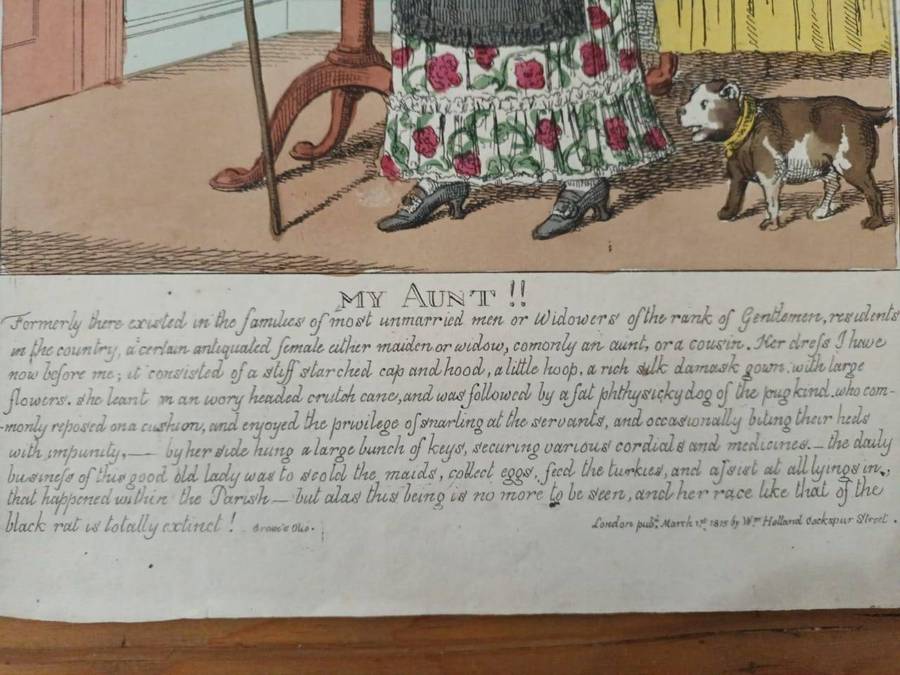 MY AUNT !!
Formerly there existed in the families of most unmarried men or Widowers of the rank of Gentlemen, residents
in the country, a certain antiquated female either maiden or widow, comonly an aunt, or a cousin. Her dreſs I have
now before me; it consisted of a stiff starched cap and hood, a little hoop, a rich silk damask gown with large
flowers. she leant on an ivory headed crutch cane, and was followed by a fat phthysicky dog of the pug kind, who com-
-monly reposed on a cushion, and enjoyed the privilege of snarling at the servants, and occasionally biting their heels
with impunity, — by her side hung a large bunch of keys, securing various cordials and medicines. — the daily
busineſs of this good old lady was to scold the maids, collect eggs, feed the turkies, and aſsist at all lyings in,
that happened within the Parish — but alas this being is no more to be seen, and her race like that of the
black rat is totally extinct ! Grose's Olio.
London pubd. March 1st 1815 by Wm Holland Cockspur Street.